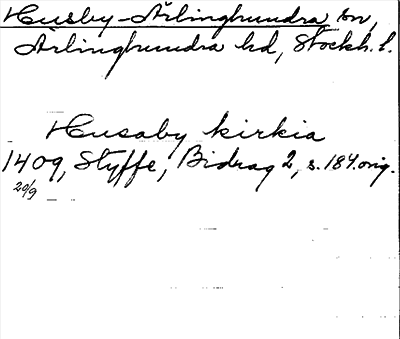 Husby-Ärlinghundra sn,
Ärlinghundra hd, Stockh. l.
Husaby kirkia
1409, Styffe, Bidrag 2, s. 184. orig.
20/9